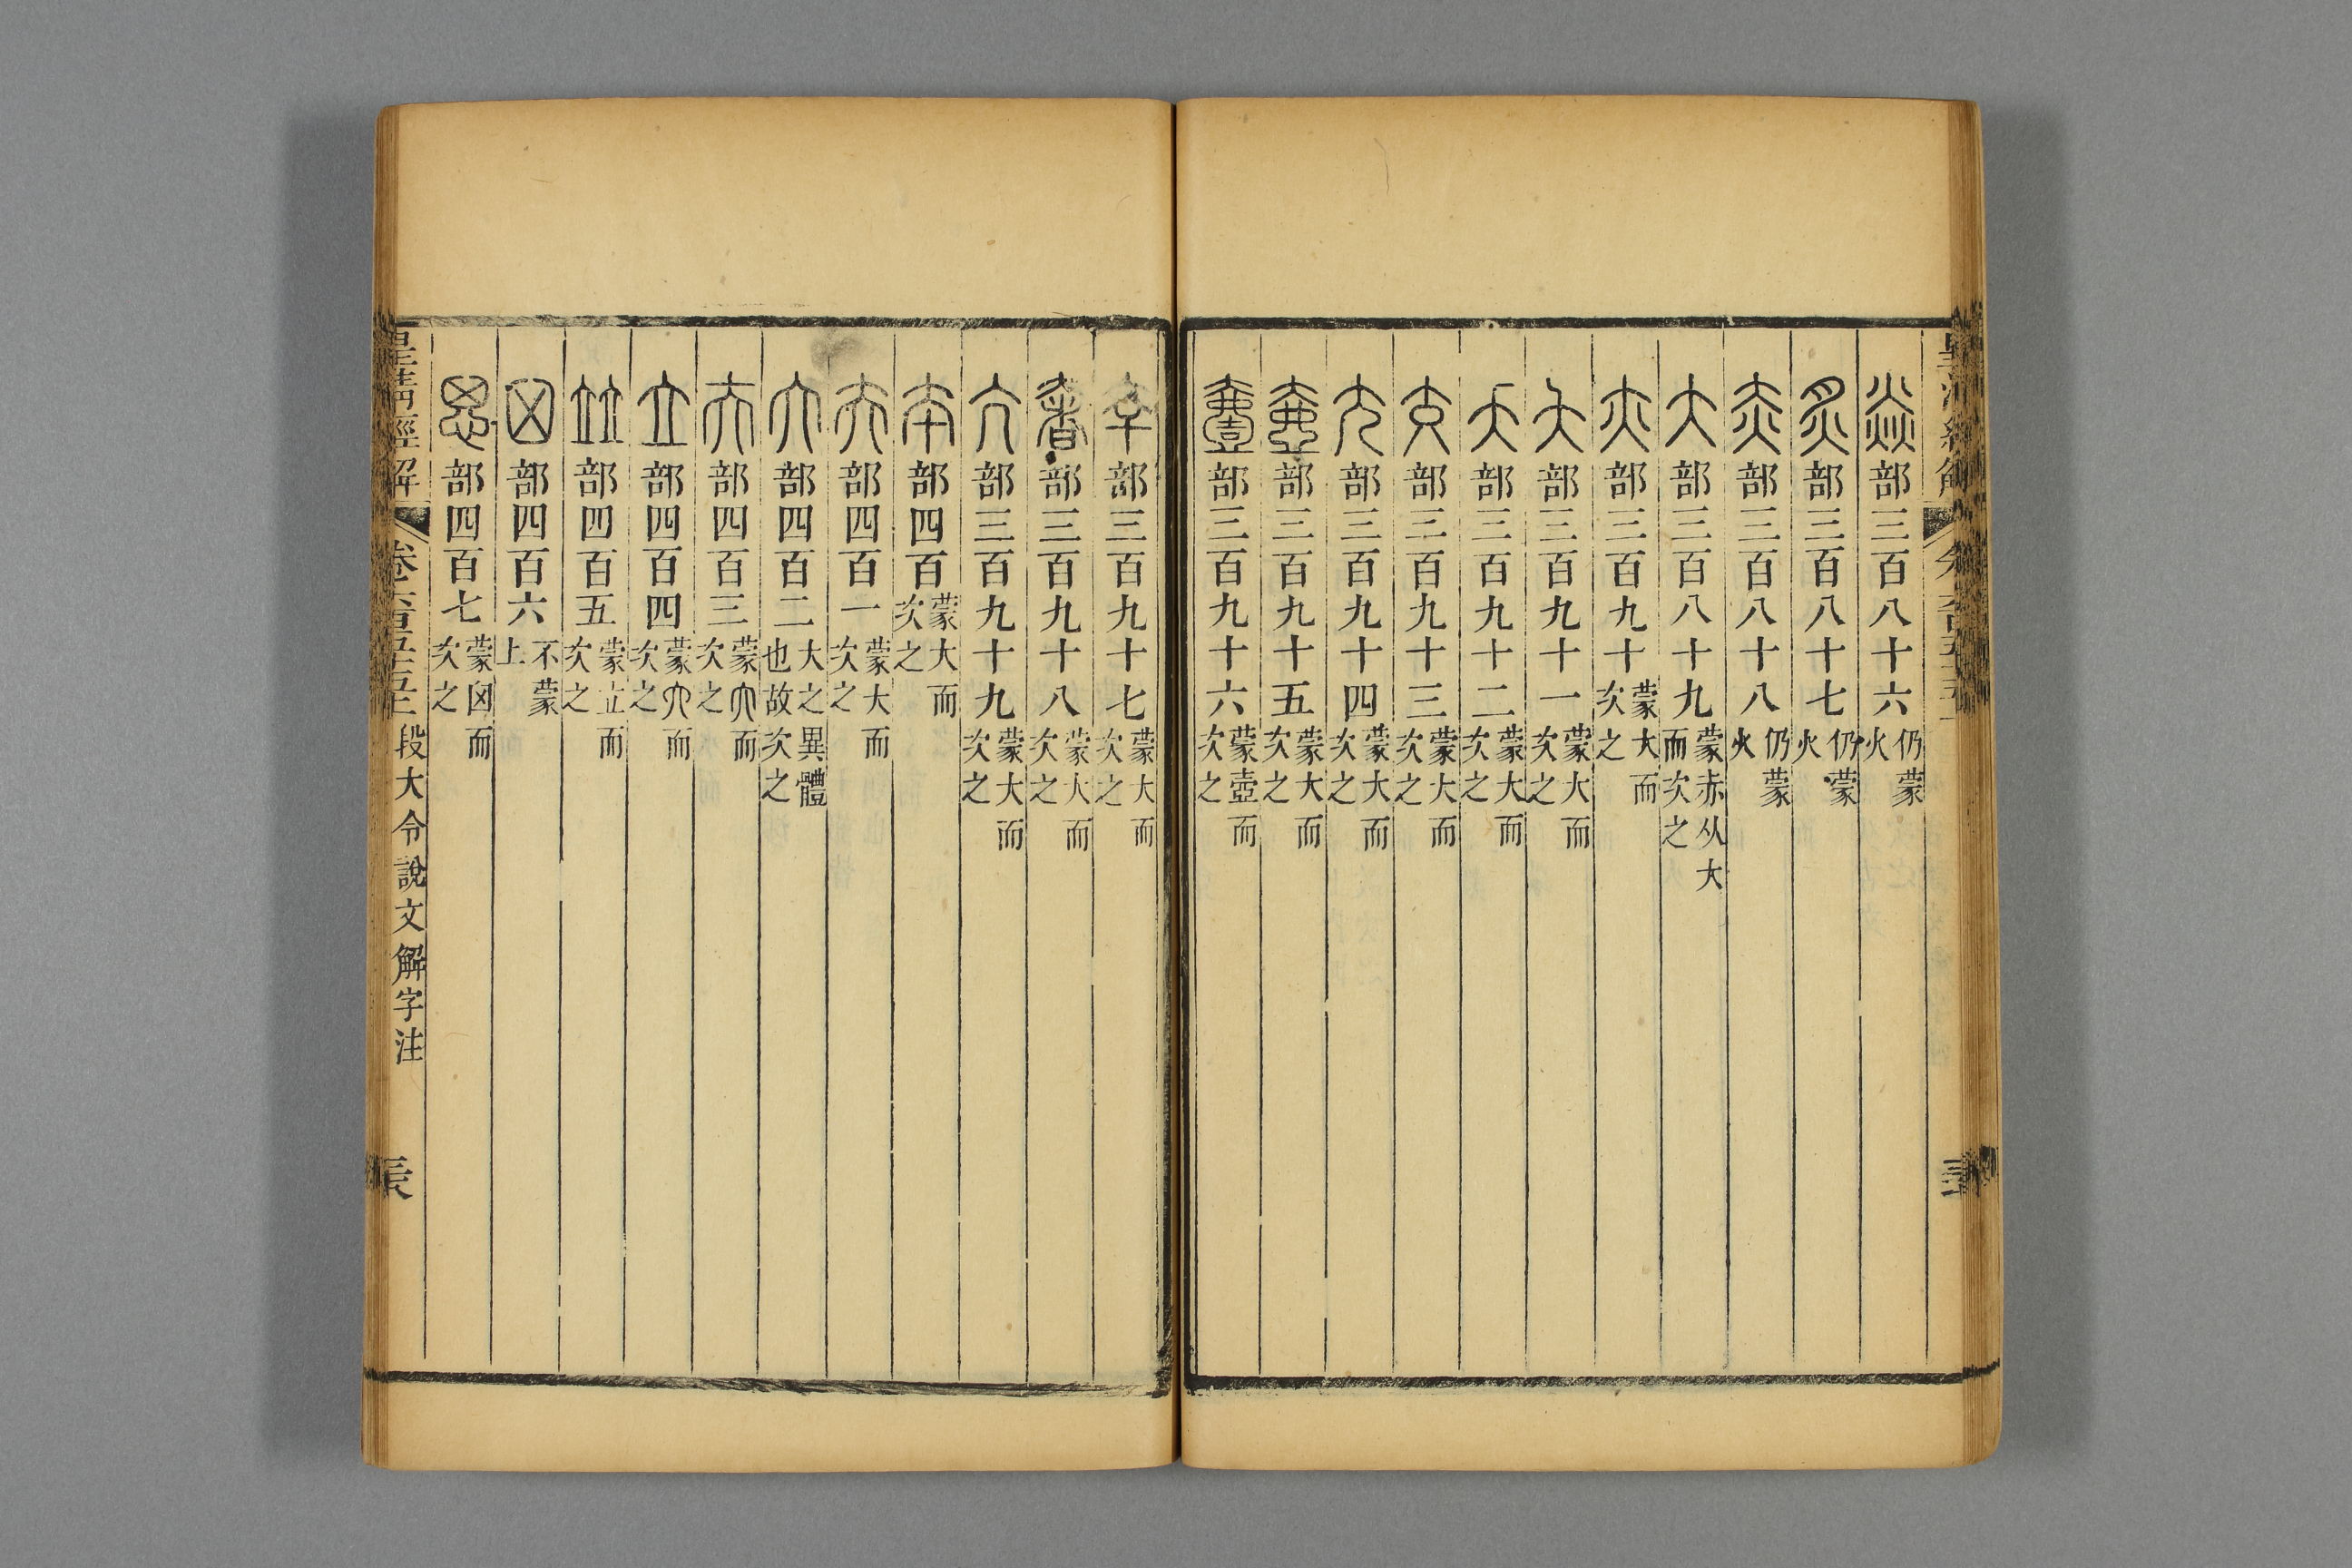 焱部三百八十六仍蒙火
炙部三百八十七仍蒙火
赤部三百八十八仍蒙火
大部三百八十九蒙赤从大而次之
亦部三百九十蒙大而次之
夨部三百九十一蒙大而次之
夭部三百九十二蒙大而次之
交部三百九十三蒙大而次之
尣部三百九十四蒙大而次之
壺部三百九十五蒙大而次之
壹部三百九十六蒙壺而次之
㚔部三百九十七蒙大而次之
奢部三百九十八蒙大而次之
亢部三百九十九蒙大而次之
夲部四百蒙大而次之
夰部四百一蒙大而次之
亣部四百二大之異體也故次之
夫部四百三蒙亣而次之
立部四百四蒙亣而次之
竝部四百五蒙立而次之
囟部四百六不蒙上
思部四百七蒙囟而次之
皇清經解 卷六百五十五 段大令說文解字注